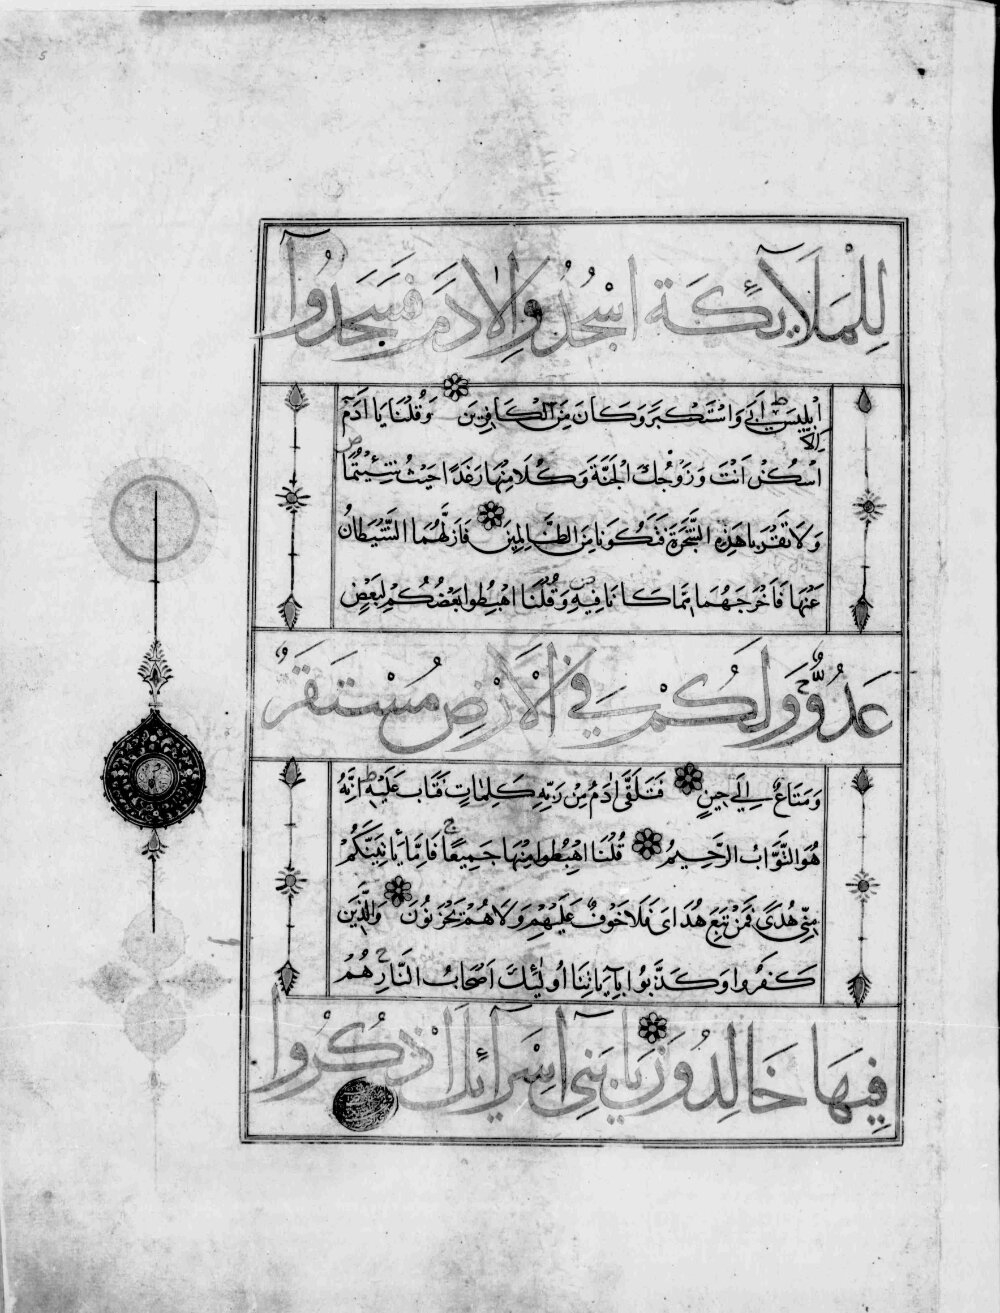 لِلْمَلَآئِكَةِ اسْجُدُوا لِاٰدَمَ فَسَجَدُوآ
اِلَّآ
اِبْلِيسَ ط اَبٰى وَاسْتَكْبَرَ وَكَانَ مِنَ الْكَافِرِينَ وَقُلْنَا يَا اٰدَمُ
اسْكُنْ اَنْتَ وَزَوْجُكَ الْجَنَّةَ وَكُلَا مِنْهَا رَغَدًا حَيْثُ شِئْتُمَا ص
وَلَا تَقْرَبَا هٰذِهِ الشَّجَرَةَ فَتَكُونَا مِنَ الظَّالِمِينَ فَاَزَلَّهُمَا الشَّيْطَانُ
عَنْهَا فَاَخْرَجَهُمَا مِمَّا كَانَا فِيهِ ص وَقُلْنَا اهْبِطُوا بَعْضُكُمْ لِبَعْضٍ
عَدُوٌّ ج وَلَكُمْ فِي الْاَرْضِ مُسْتَقَرٌّ
وَمَتَاعٌ اِلٰى حِينٍ فَتَلَقّٰى اٰدَمُ مِنْ رَبِّهِ كَلِمَاتٍ فَتَابَ عَلَيْهِ ط اِنَّهُ
هُوَ التَّوَّابُ الرَّحِيمُ قُلْنَا اهْبِطُوا مِنْهَا جَمِيعًا ج فَاِمَّا يَأْتِيَنَّكُمْ
مِنِّي هُدًى فَمَنْ تَبِعَ هُدَاىَ فَلَا خَوْفٌ عَلَيْهِمْ وَلَا هُمْ يَحْزَنُونَ وَالَّذِينَ
كَفَرُوا وَكَذَّبُوا بِاٰيَاتِنَا اُولٰئِكَ اَصْحَابُ النَّارِ ج هُمْ
فِيهَا خَالِدُونَ يَا بَنِىٓ اِسْرَآئِلَ اذْكُرُوا